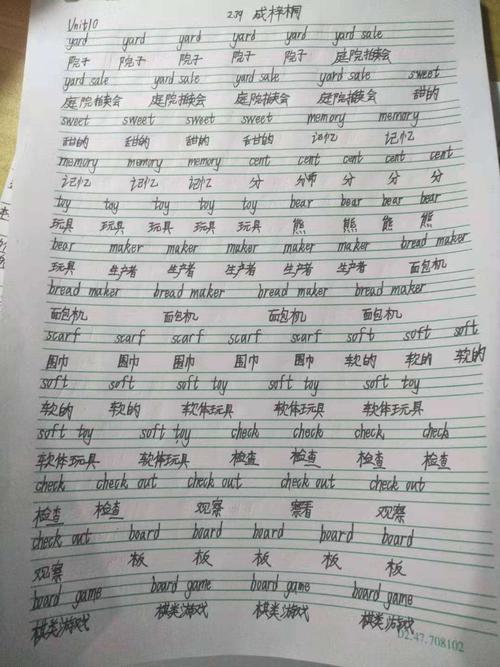 Unit10 2.29 成梓桐
yard yard yard yard yard yard sale
院子 院子 院子 院子 院子 庭院拍卖会
yard sale yard sale yard sale yard sale sweet
庭院拍卖会 庭院拍卖会 庭院拍卖会 庭院拍卖会 甜的
sweet sweet sweet sweet memory memory
甜的 甜的 甜的 甜的 记忆 记忆
memory memory memory cent cent cent cent
记忆 记忆 记忆 分 分币 分 分
toy toy toy toy toy bear bear bear
玩具 玩具 玩具 玩具 玩具 熊 熊 熊 熊
bear maker maker maker maker maker bread maker
玩具 生产者 生产者 生产者 生产者 生产者 面包机
bread maker bread maker bread maker bread maker
面包机 面包机 面包机 面包机
scarf scarf scarf scarf scarf soft soft soft
围巾 围巾 围巾 围巾 围巾 软的 软的 软的
soft soft soft toy soft toy soft toy
软的 软的 软体玩具 软体玩具 软体玩具
soft toy soft toy check check check check
软体玩具 软体玩具 检查 检查 检查 检查
check check out check out check out check out
检查 检查 观察 察看 观察
check out board board board board board
观察 板 板 板 板
board game board game board game board game
棋类游戏 棋类游戏 棋类游戏 棋类游戏
02.47.708102